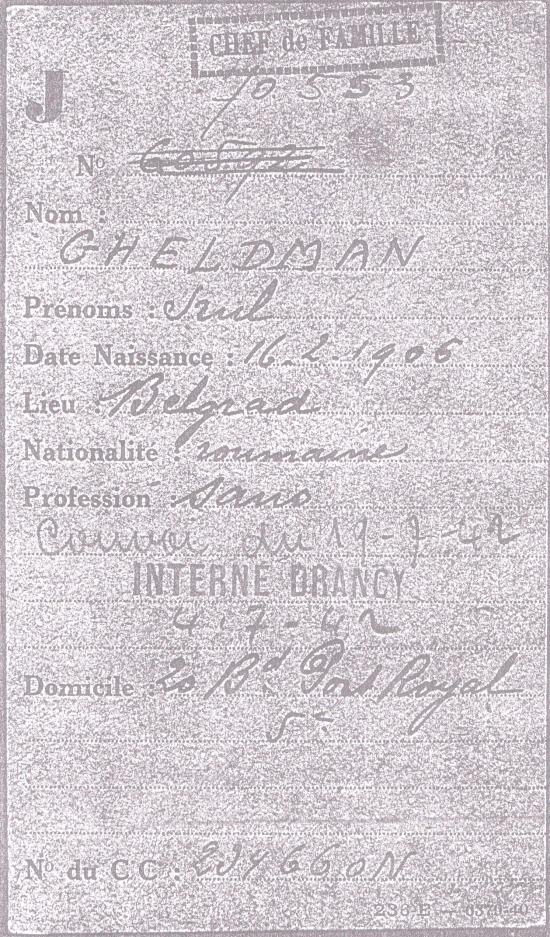 CHEF de FAMILLE
J
70553
Nº
Nom :
GHELDMAN
Prénoms : Srul
Date Naissance : 16-2-1906
Lieu : Belgrad
Nationalité : roumaine
Profession : sans
Convoi du 19-7-42
INTERNE DRANCY
4-7-42
Domicile : 20 Bd Port Royal
5e
Nº du C C :